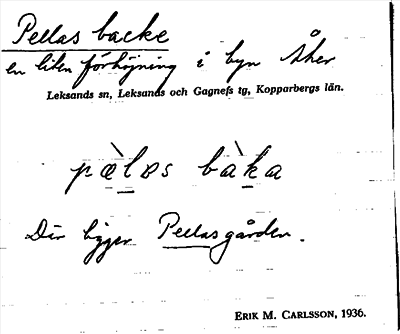 Pellas backe
en liten förhöjning i byn Åker
Leksands sn, Leksands och Gagnefs tg, Kopparbergs län.
pæ̀l̲ɒs bàk̲a
Där ligger Pellasgården.
ERIK M. CARLSSON, 1936.